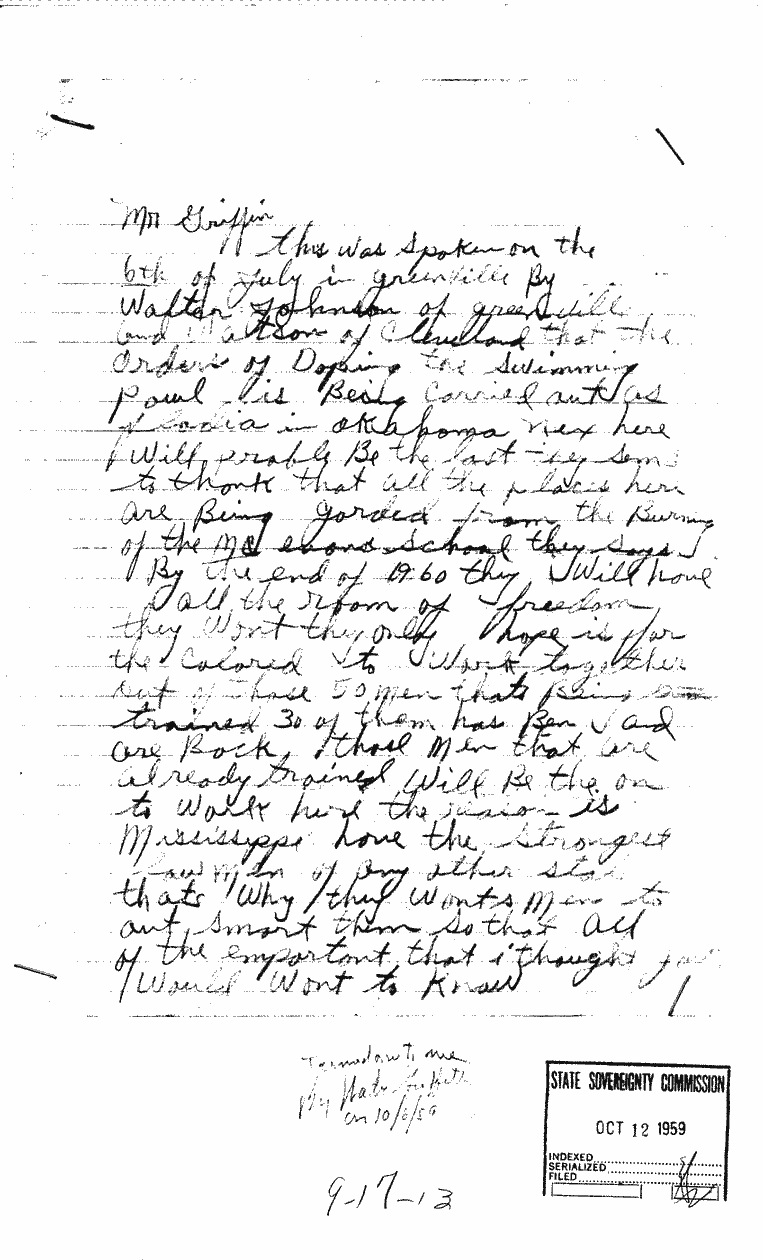 Mr Griffin
this was spoken on the
6th of July in greenville By
Walter Johnson of greenvill
and Watson of Cleveland that the
Orders of Doping the Swimming
Powl is Being Carried out as
in okahoma nex here
Will prable Be the last they sem
to thonk that all the places here
are Being gorded from the Burning
of the school they says
By the end of 1960 they Will have
all the room of freedom
they Wont they only hope is for
the Colored to Work together
out of those 50 men thats Being
trained 30 of them has Ben and
are Back, those Men that are
already trained Will Be the on
to Work here the reason is
Mississippi have the Strongest
law Men of any other stat
thats Why they Wonts Men to
out Smart them So that All
of the emportant that i thought you
Would Wont to Know
to me
By
on 10/6/59
STATE SOVEREIGNTY COMMISSION
OCT 12 1959
INDEXED
SERIALIZED
FILED
9-17-13